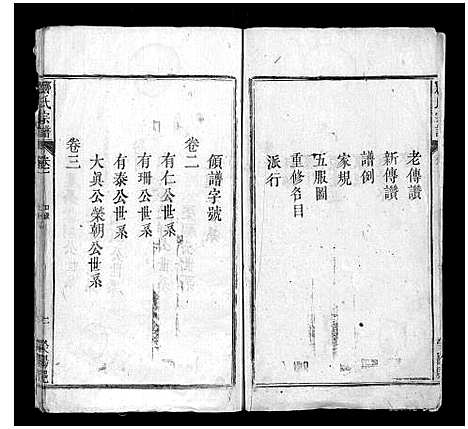 老傳讚
新傳讚
譜例
家規
五服圖
重修名目
派行
領譜字號
卷二
有仁公世系
有珊公世系
有泰公世系
卷三
大眞公榮朝公世系
氏宗譜